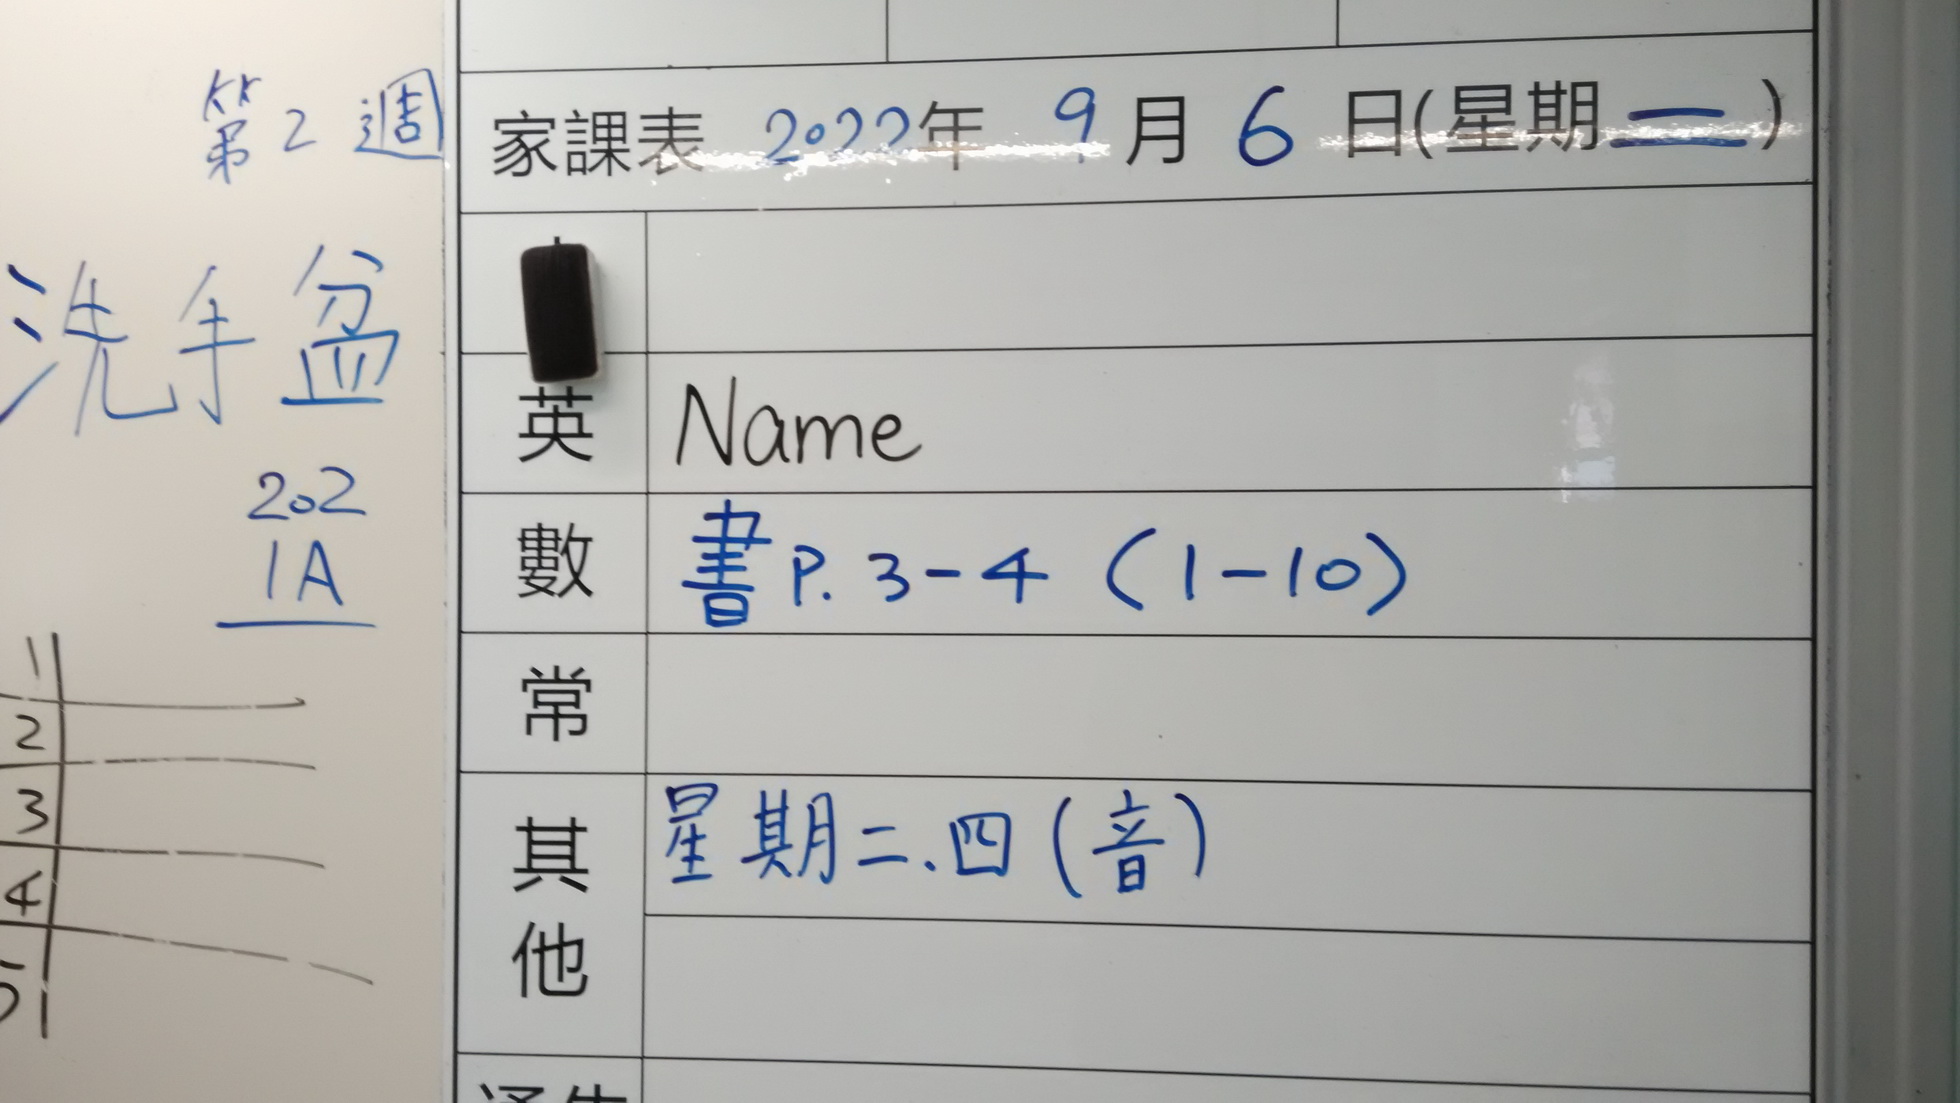 第2週
洗手盆
202
1A
1
2
3
4
5
家課表 2022年 9月 6日(星期二)
英 Name
數 書 P. 3-4 (1-10)
常
其他 星期二、四(音)